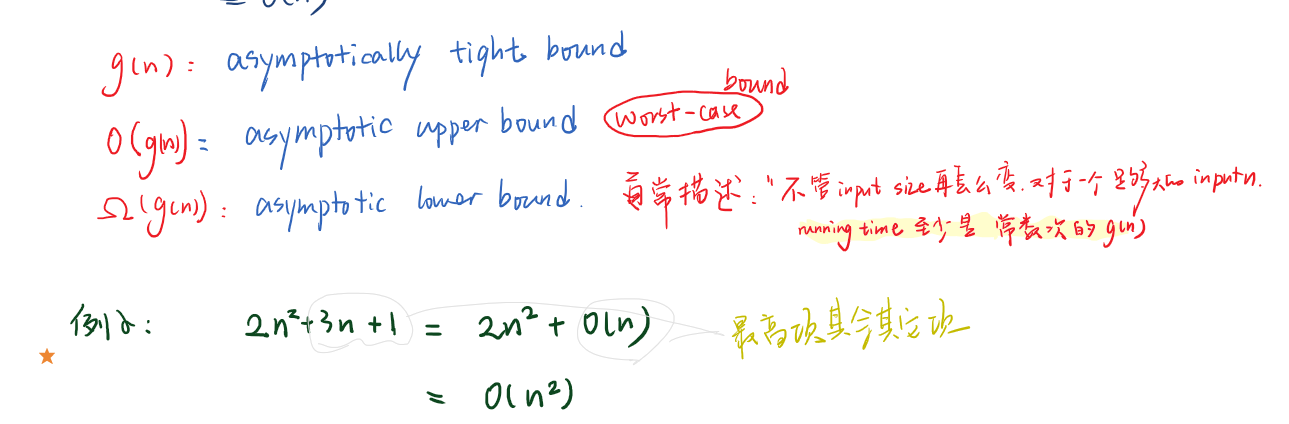 g(n): asymptotically tight bound
O(g(n)): asymptotic upper bound worst-case bound
Ω(g(n)): asymptotic lower bound. 常描述:"不管input size再怎么变.对于一个足够大的 input n.
running time 至少是 常数次的 g(n)
例2: 2n²+3n+1 = 2n² + O(n) 最高项其余其它项
= O(n²)